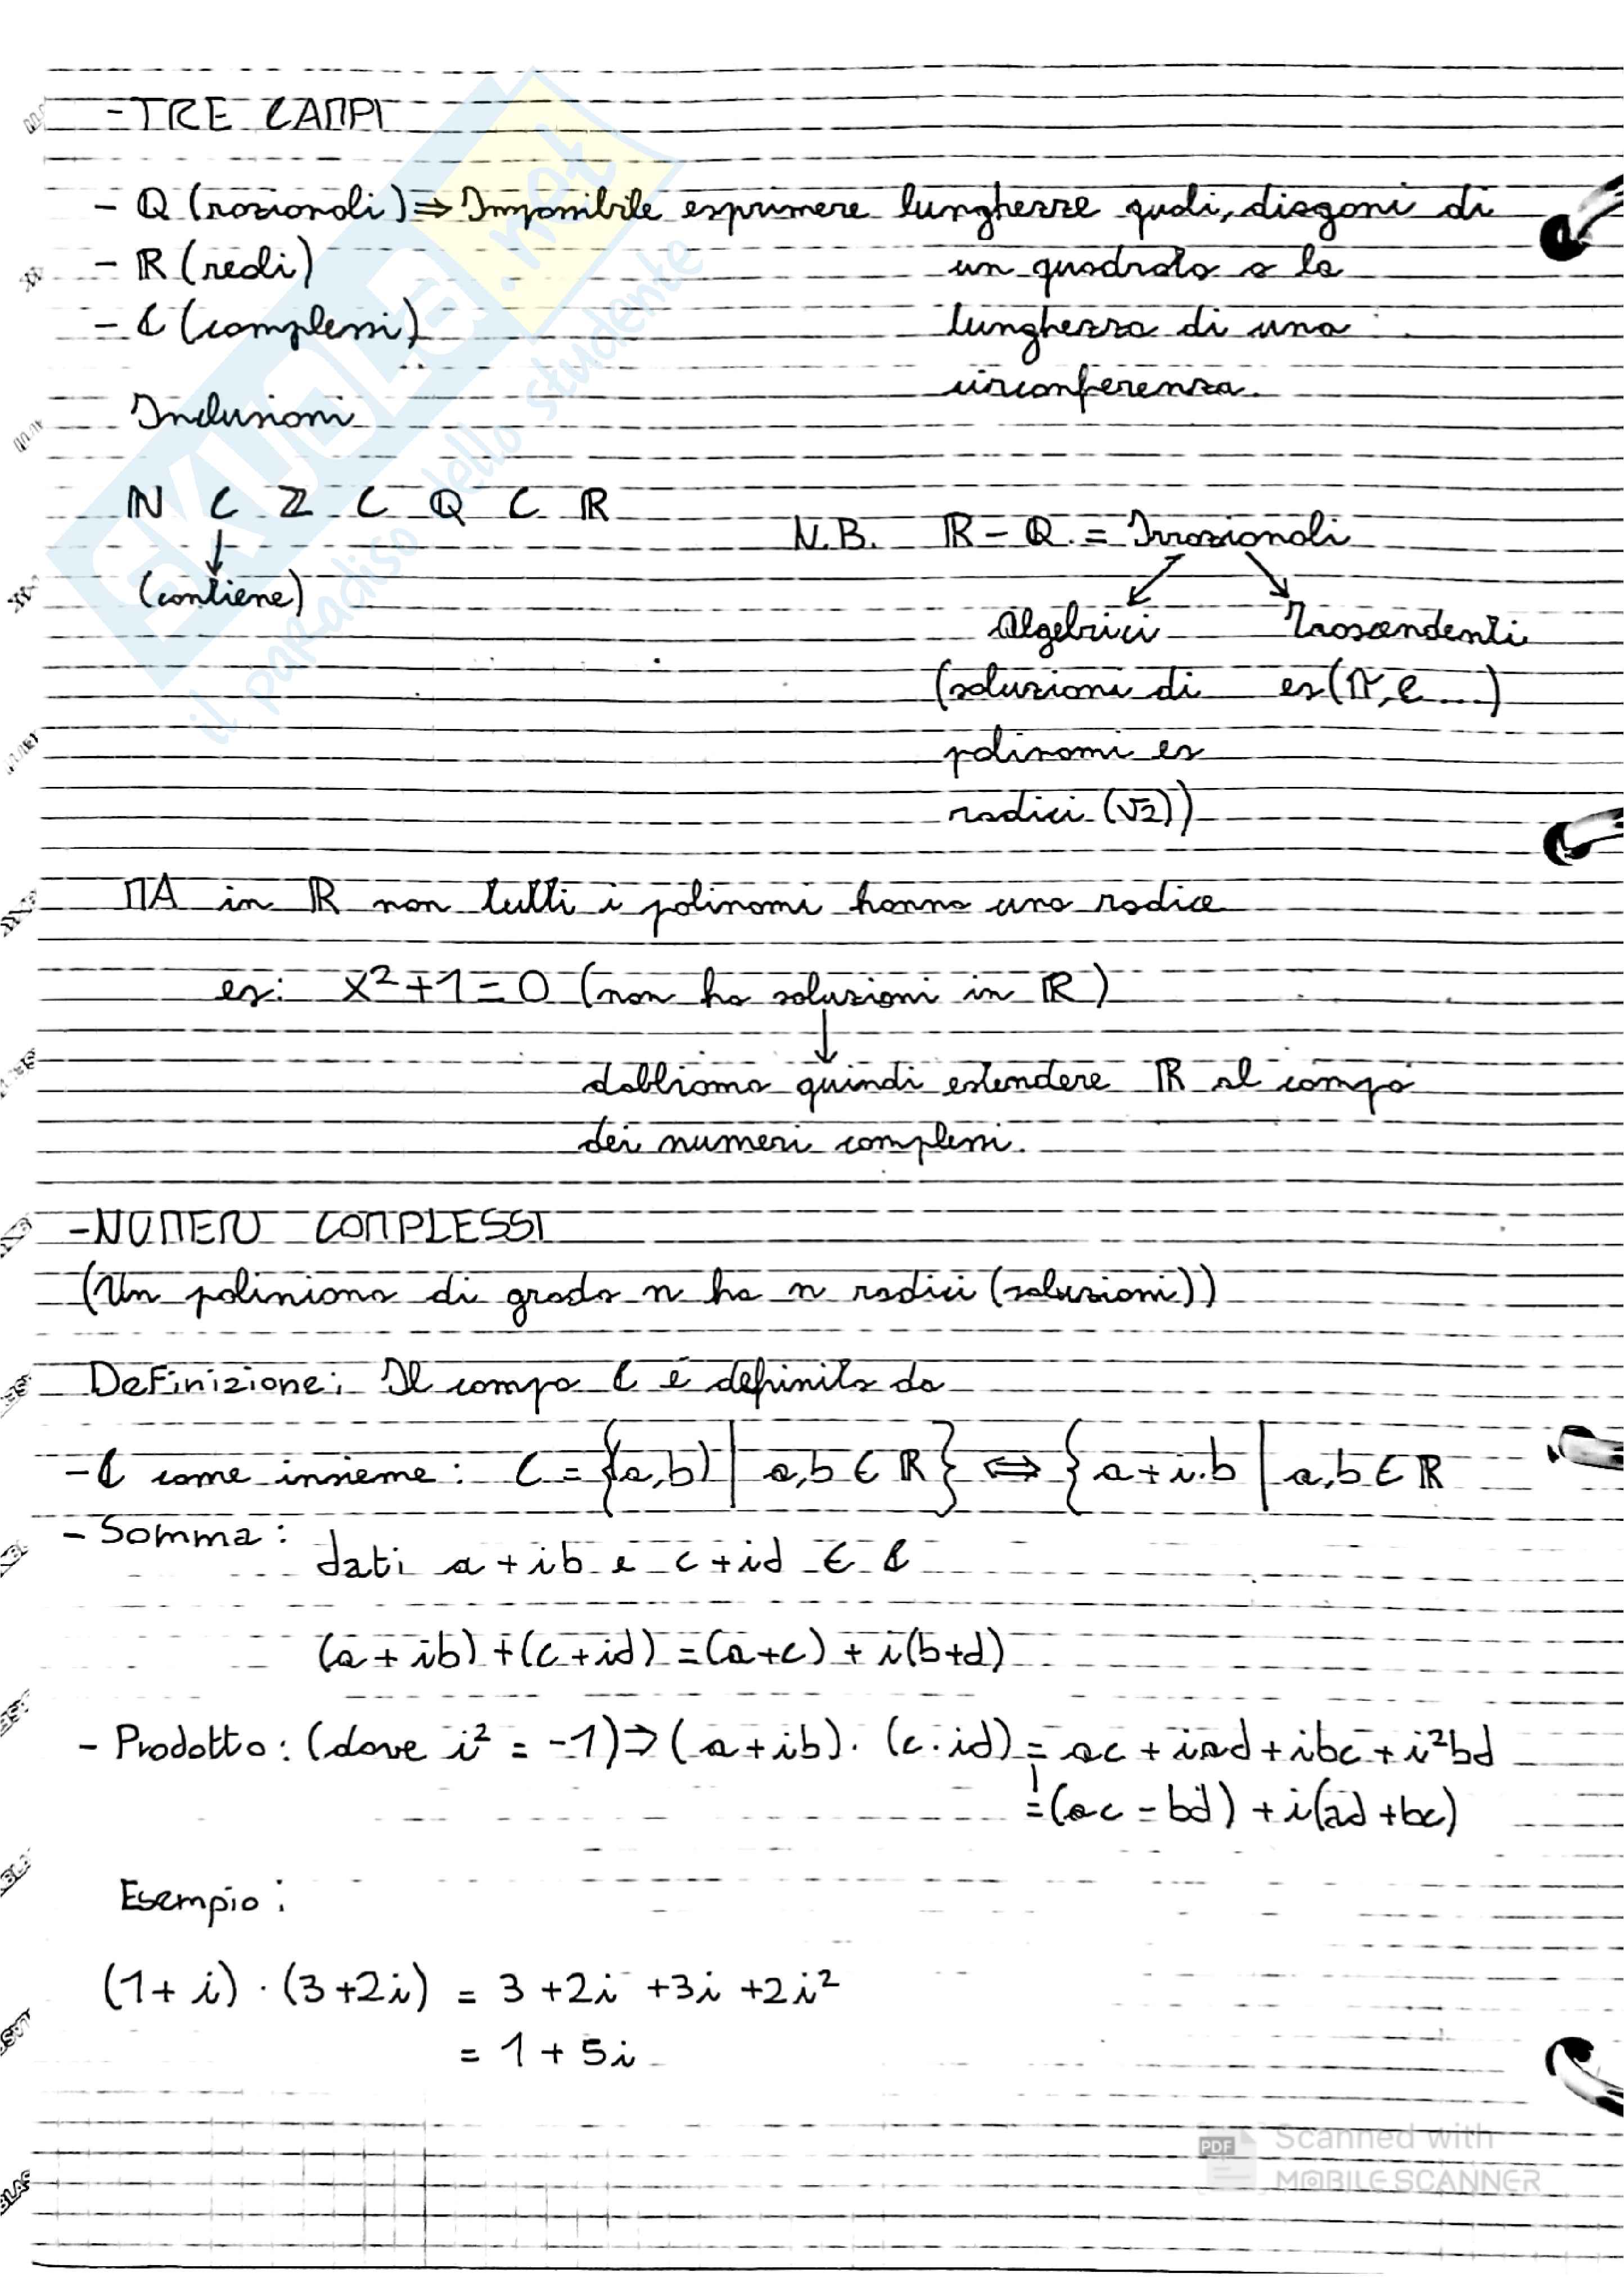 -TRE CAMPI
- Q (razionali) ⇒ Impossibile esprimere lunghezze quali, diagoni di
- ℝ (reali)
un quadrato o la
- C (complessi)
lunghezza di una
circonferenza.
Inclusioni
ℕ ⊂ ℤ ⊂ ℚ ⊂ ℝ
N.B. ℝ - ℚ = Irrazionali
(contiene)
Algebrici Trascendenti
(soluzioni di es(π, e ....)
polinomi es
radici (√2))
MA in ℝ non tutti i polinomi hanno una radice
es: x²+1=0 (non ha soluzioni in ℝ)
dobbiamo quindi estendere ℝ al campo
dei numeri complessi.
-NUMERI COMPLESSI
(Un poliniomo di grado n ha n radici (soluzioni))
Definizione: Il campo C é definito da
- C come insieme: C = {(a,b) | a,b ∈ ℝ} ⇔ {a+i·b | a,b ∈ ℝ
- Somma:
dati a+ib e c+id ∈ C
(a+ib)+(c+id)=(a+c)+i(b+d)
- Prodotto: (dove i² = -1) ⇒ (a+ib)·(c·id) = ac+iad+ibc+i²bd
=(ac-bd)+i(ad+bc)
Esempio:
(1+i)·(3+2i) = 3+2i+3i+2i²
= 1+5i
SKUOLA.net
il paradiso dello studente
PDF Scanned with
MOBILE SCANNER